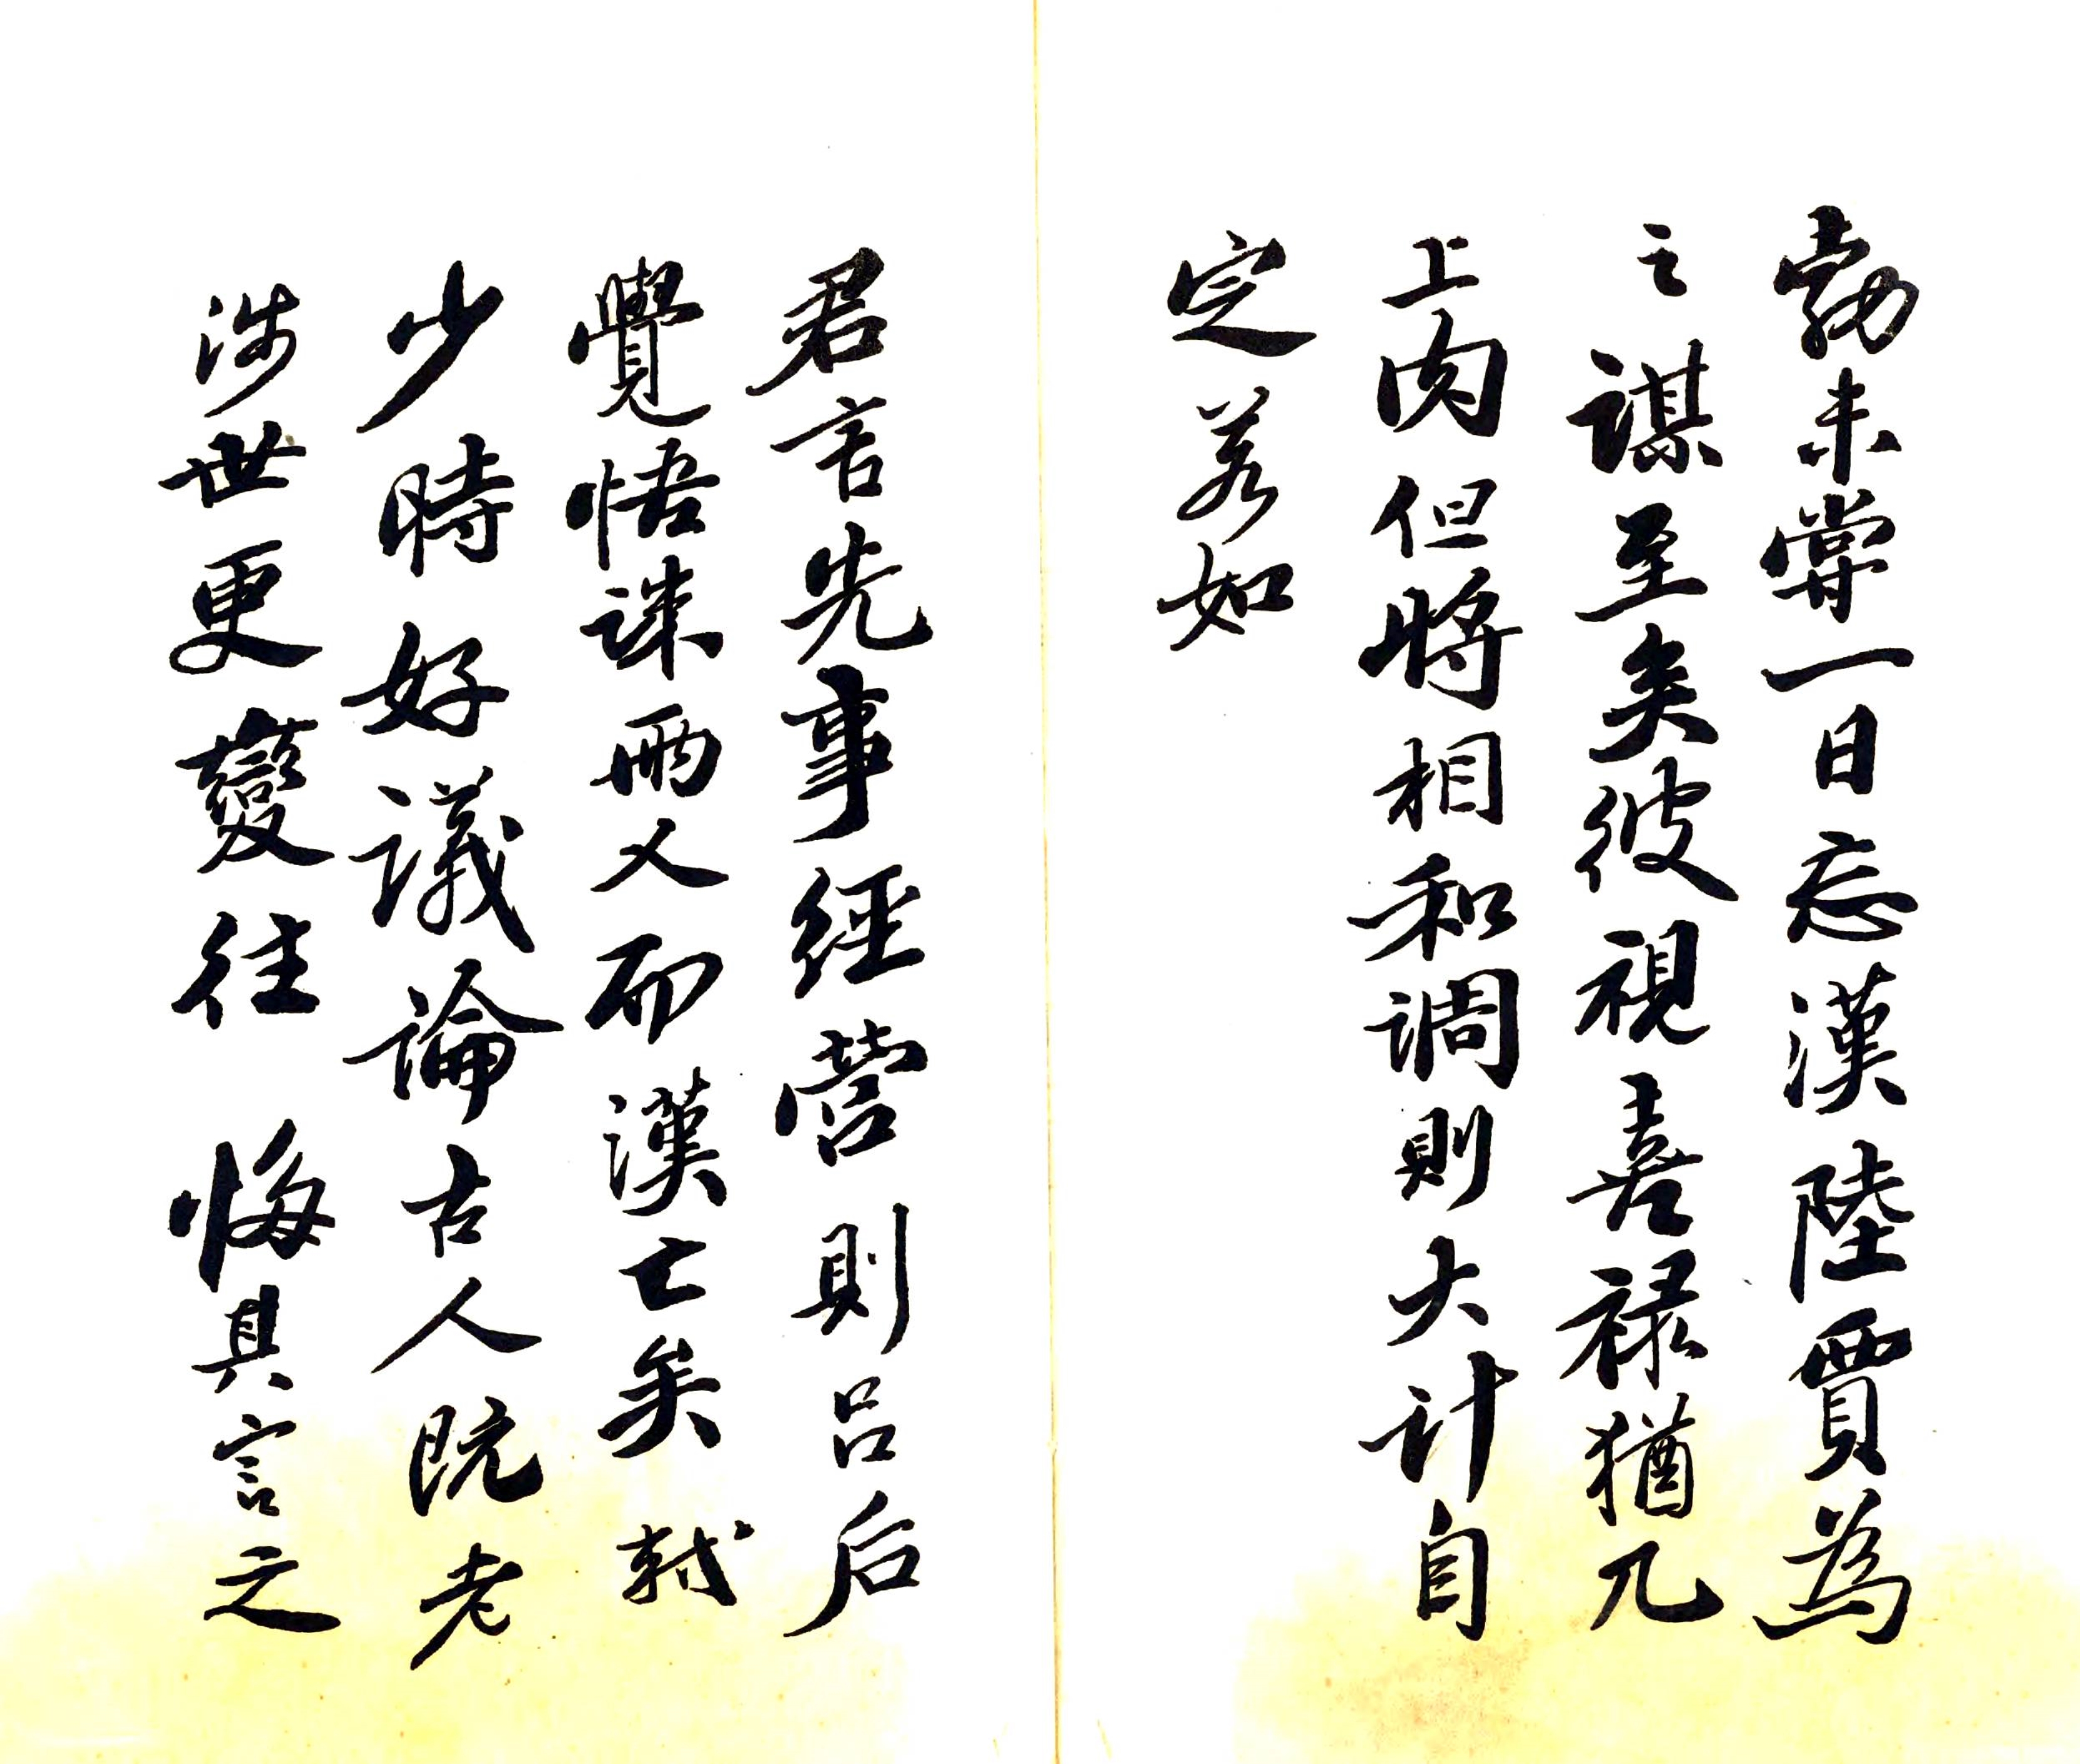 勃未嘗一日忘漢陸賈為
之謀至矣彼視喜禄猶几
上肉但將相和調則大計自
定若如
君言先事經營則呂后
覺悟誅兩人而漢亡矣軾
少時好議論古人既老
涉世更變往悔其言之